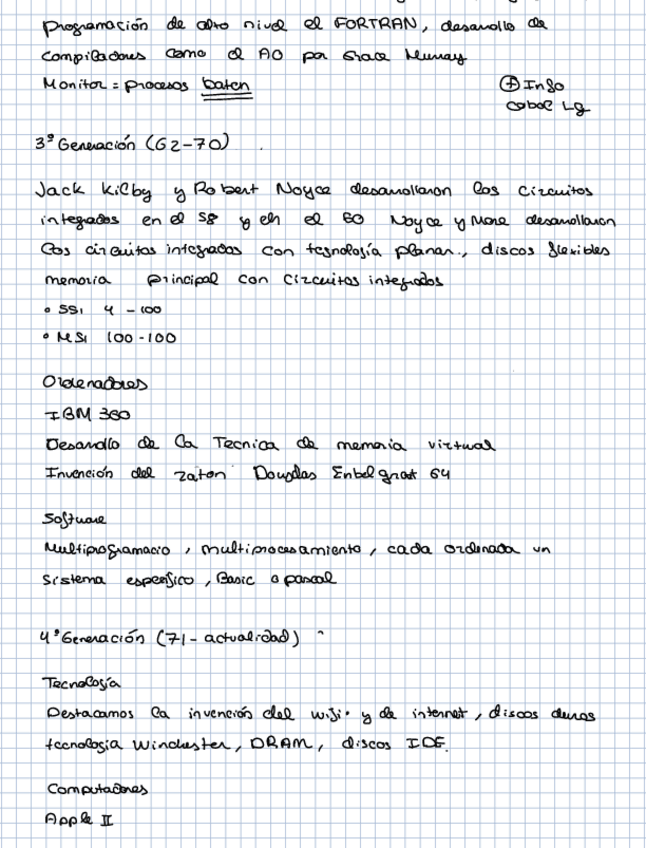 Programación de alto nivel el FORTRAN, desarollo de
Compiladores como el A0 por Grace Murray
Monitor = procesos batch
⊕ Info
cobol Lg
3ª Generación (62-70)
Jack Kilby y Robert Noyce desarrollaron los circuitos
integrados en el 58 y en el 60 Noyce y More desarrollaron
los circuitos integrados con tegnología planar., discos flexibles
memoria principal con circuitos integrados
• SSI 4 - 100
• MSI 100-100
Ordenadores
IBM 360
Desarollo de la Tecnica de memoria virtual
Invención del raton Douglas Enbelgnat 64
Software
Multiprogramacio, multiprocesamiento, cada ordenador un
Sistema especifico, Basic o pascal
4ª Generación (71- actualidad)
Tecnología
Destacamos la invención del wifi y de internet, discos duros
tecnologia Winchester, DRAM, discos IDE.
Computadores
Apple II